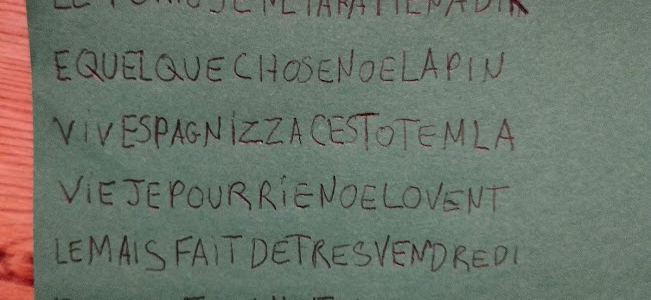 EQUELQUECHOSENOELAPIN
ViVESPAGNiZZACESTOTEMLA
ViEJEPOURRiENOELOVENT
LEMAISFAiTDETRESVENDREDi